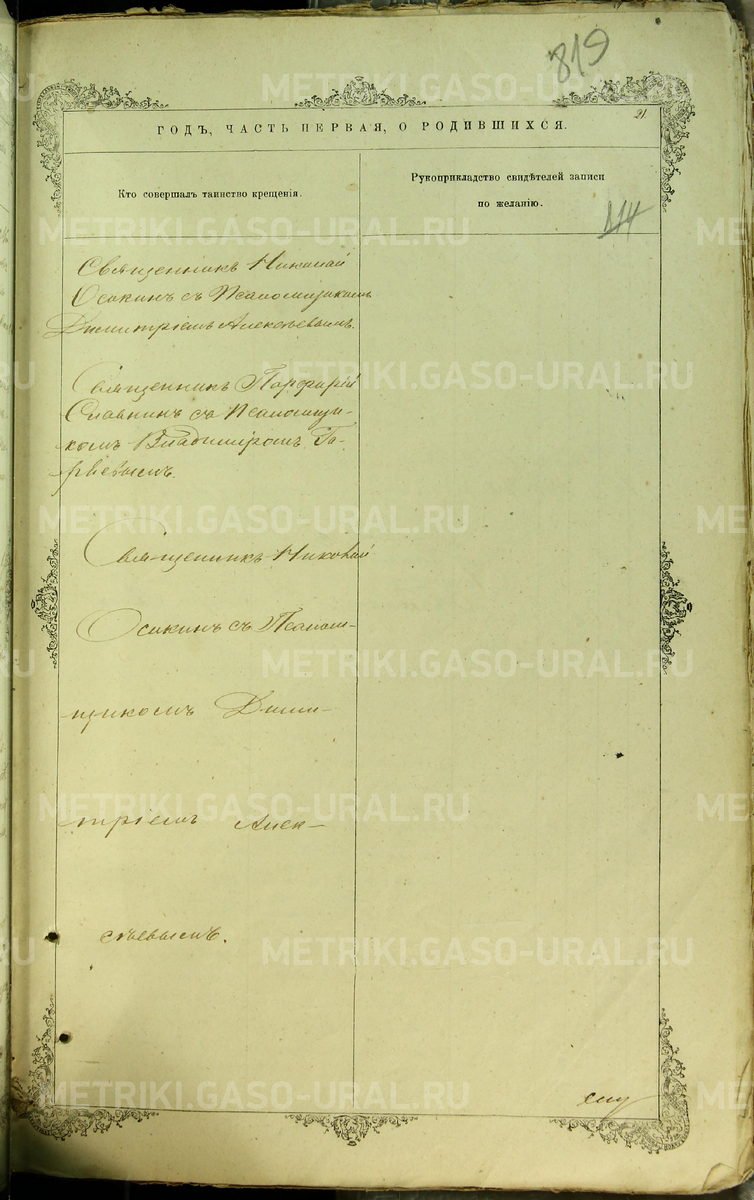 819
21.
ГОДЪ, ЧАСТЬ ПЕРВАЯ, О РОДИВШИХСЯ.
Кто совершалъ таинство крещенія.
Рукоприкладство свидѣтелей записи
по желанію.
114
Священникъ Николай
Осокинъ съ Псаломщикомъ
Димитріемъ Алексѣевымъ.
Священникъ Порфирій
Славнинъ съ Псаломщи-
комъ Владиміромъ Го-
рѣевымъ.
Священникъ Николай
Осокинъ съ Псалом-
щикомъ Дими-
тріемъ Алек-
сѣевымъ.
METRIKI.GASO-URAL.RU